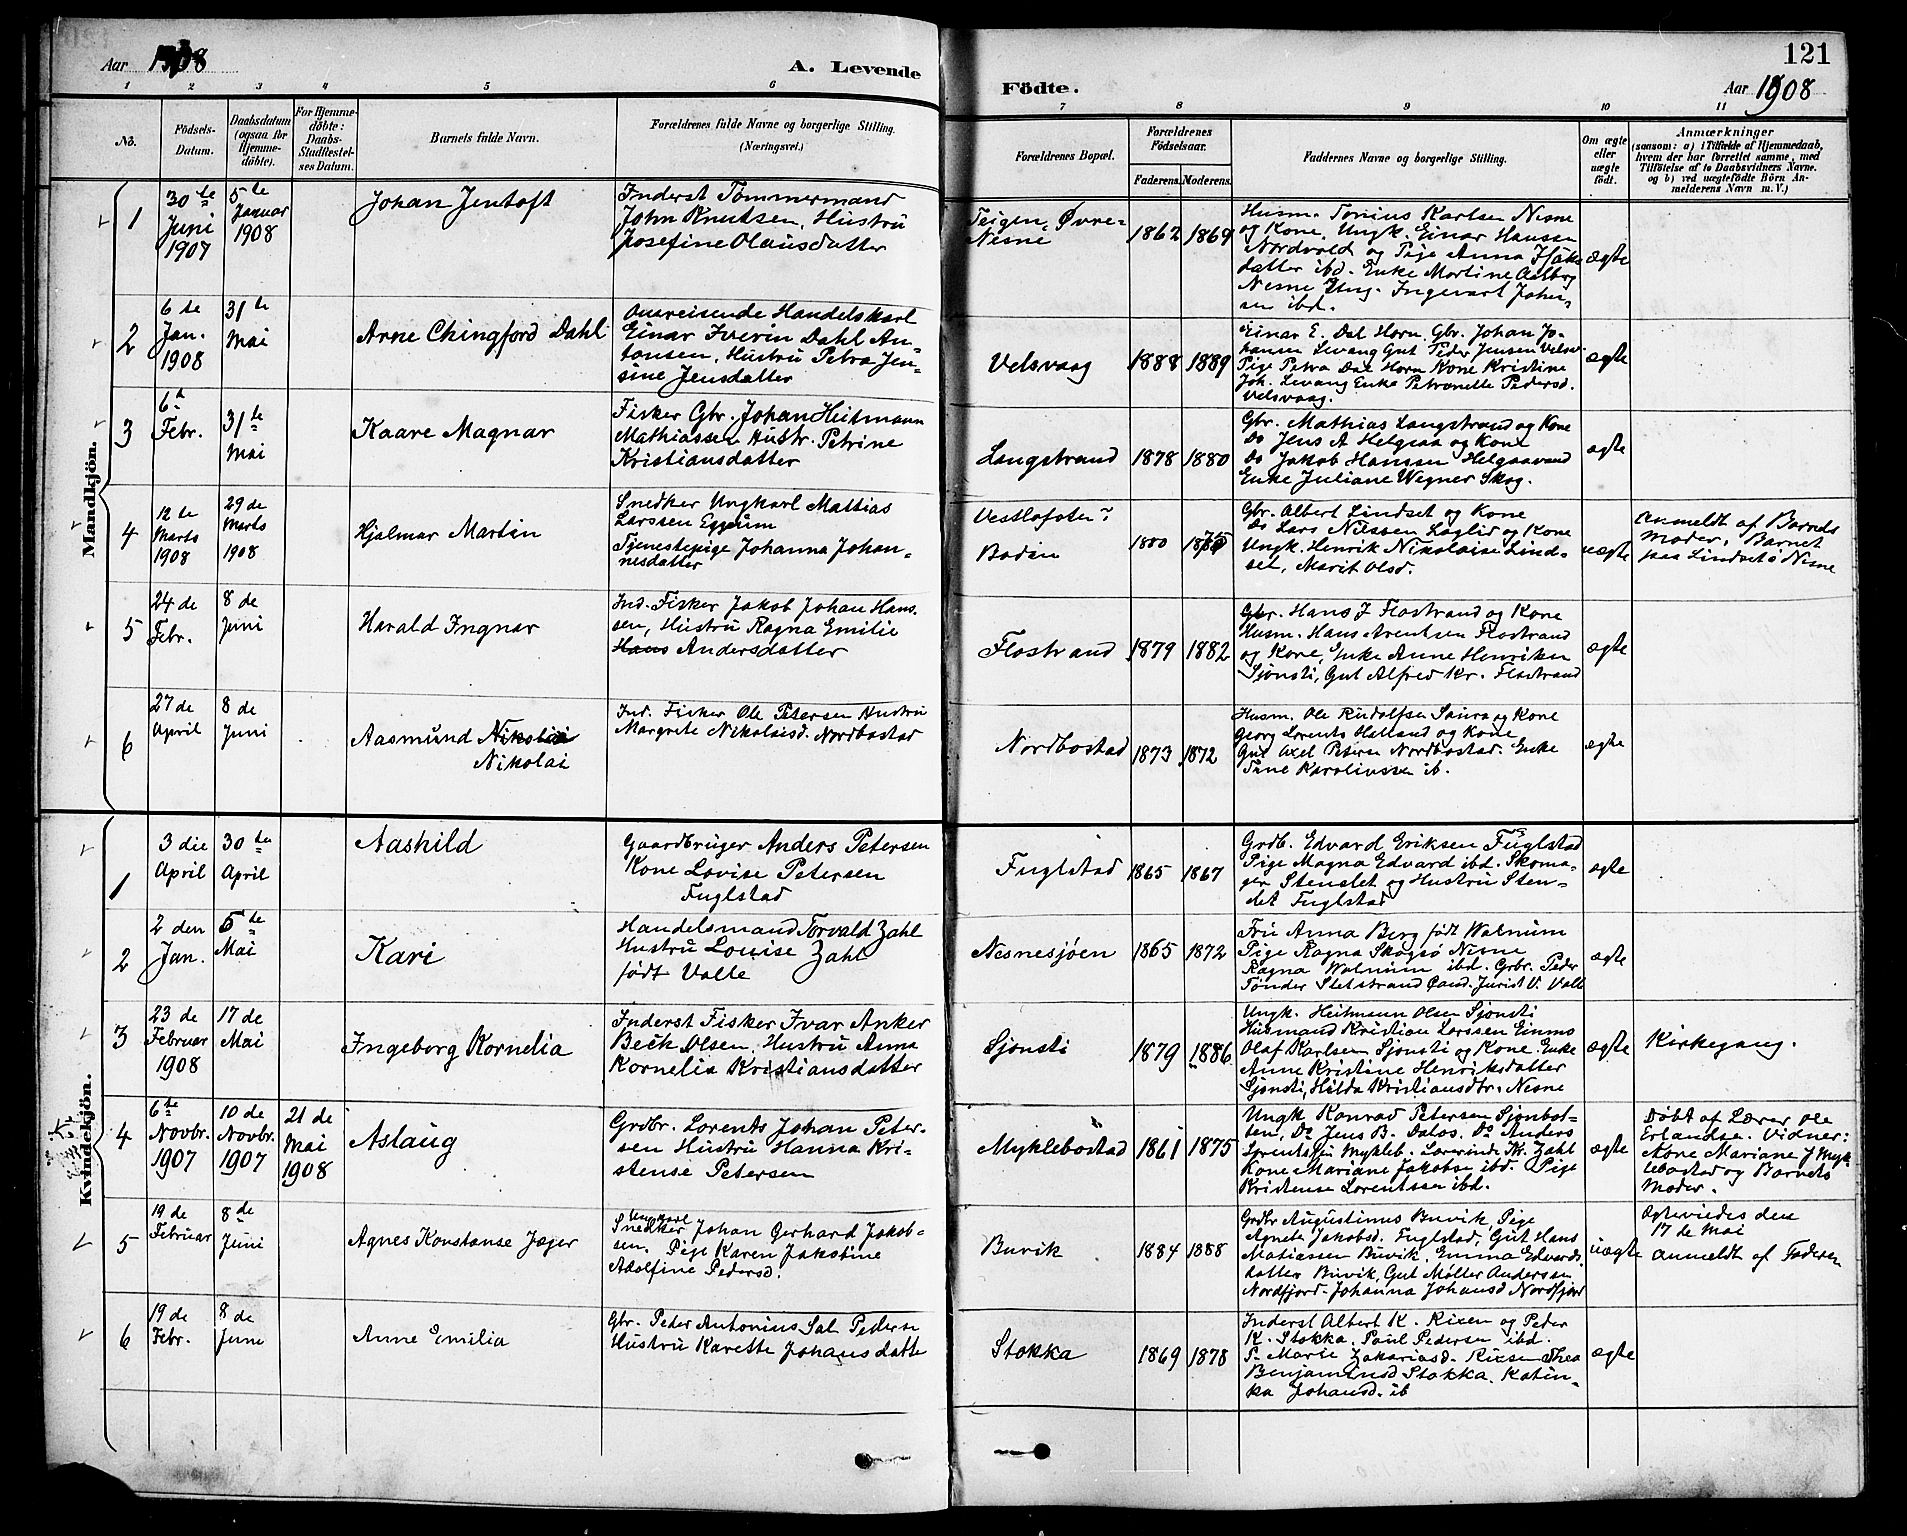 121
Aar 1908
A. Levende
Födte.
Aar 1908
1 2 3 4 5 6 7 8 9 10 11
No.
Födsels-
Datum.
Daabsdatum
(ogsaa for
Hjemme-
döbte).
For Hjemme-
döbte:
Daabs-
Stadfæstel-
ses Datum.
Barnets fulde Navn.
Forældrenes fulde Navne og borgerlige Stilling.
(Næringsvei.)
Forældrenes Bopæl.
Forældrenes
Födselsaar.
Faderens. Moderens.
Faddernes Navne og borgerlige Stilling.
Om ægte
eller
uægte
födt.
Anmærkninger
(saasom: a) i Tilfælde af Hjemmedaab,
hvem der har forrettet samme, med
Tilföielse af to Daabsvidners Navne.
og b) ved uægtefödte Börn An-
melderens Navn m. V.)
Mandkjön.
1
30te
Juni
1907
5te
Januar
1908
Johan Jentoft
Inderst Tømmermand
John Knutsen, Hustru
Josefine Olausdatter
Teigen, Øvre-
Nesne
1862 1869
Husm. Tonius Karlsen Nesne
og Kone, Ungk. Einar Hansen
Nordvold og Pige Anna
datter ibd. Enke Martine Aasberg
Nesne Ung. Ingevart Johan-
sen ibd.
ægte
2
6te
Jan.
1908
31te
Mai
Arne Chingford Dahl
Omreisende Handelskarl
Einar Iverin Dahl An-
tonsen, Hustru Petra Jen-
sine Jensdatter
Velsvaag
1888 1889
Einar E. Dal Horn. Gbr. Johan Jo-
hansen Levang Gut Peder Jensen Velsv.
Pige Petra Dal Horn Kone Kristine
Joh. Levang Enke Petronelle Pedersd.
Velsvaag.
ægte
3
6te
Febr.
31te
Mai
Kaare Magnar
Fisker Gbr. Johan Heitmann
Mathiassen Hustr. Petrine
Kristiansdatter
Langstrand
1878 1880
Gbr. Mathias Langstrand og Kone
Do Jens A Helgaa og Kone
Do Jakob Hanssen Helgaavand
Enke Juliane Wegner Skog.
ægte
4
12te
Marts
1908
29de
Marts
1908
Hjalmar Martin
Snedker Ungkarl Mathias
Larssen Eggum
Tjenestepige Johanna Johan-
nesdatter
Vestlofoten?
Bodin
1880 1875
Gbr. Albert Lindset og Kone
Do Lars Nilssen Laglid og Kone
Ungk. Henrik Nikolaisen Lind-
set, Marit Olsd.
uægte
Anmeldt af Barnets
Moder, Barnet
paa Lindset i Nesne
5
24de
Febr.
8de
Juni
Harald Ingnar
Ind. Fisker Jakob Johan Hans-
sen, Hustru Ragna Emilie
Hans Andersdatter
Flostrand
1879 1882
Gbr. Hans J Flostrand og Kone
Husm. Hans Arentsen Flostrand
og Kone, Enke Anne Henriksen
Sjønsti, Gut Alfred Kr. Flostrand
ægte
6
27de
April
8de
Juni
Aasmund Nikolai
Nikolai
Ind. Fisker Ole Petersen Hustru
Margrete Nikolaisd. Nordbostad
Nordbostad
1873 1872
Husm. Ole Rudolfsen Saura og Kone
Georg Lorents Helland og Kone
Gut Axel Petersen Nordbostad. Enke
Tine Karoliussen ib.
ægte
Kvindekjön.
1
3die
April
30te
April
Aashild
Gaardbruger Anders Petersen
Kone Lovise Petersen
Fuglstad
Fuglstad
1865 1867
Grdb. Edvard Eriksen Fuglstad
Pige Magna Edvard ibd. Skoma-
ger Stenslet og Hustru Sten-
slet Fuglstad
ægte
2
2den
Jan.
5te
Mai
Kari
Handelsmand Torvald Zahl
Hustru Louise Zahl
født Valle
Nesnesjøen
1865 1872
Fru Anna Berg født Walnum
Pige Ragna Skogsø Nesne
Ragna Walnum ibd. Grbr. Peder
Tønder Stetstrand Cand. Jurist V. Valle
ægte
3
23de
Februar
1908
17de
Mai
Ingeborg Kornelia
Inderst Fisker Ivar Anker
Beck Olsen, Hustru Anna
Kornelia Kristiansdatter
Sjonsti
1879 1886
Ungk. Heitmann Olsen Sjonsti
Husmand Kristian Larssen Einmo
Olaf Karlsen Sjonsti og Kone. Enke
Anne Kristine Henriksdatter
Sjonsti, Hilda Kristiansdtr. Nesne
ægte
Kirkegang.
4
6te
Novbr.
1907
10de
Novbr.
1907
21de
Mai
1908
Aslaug
Grdbr. Lorents Johan Peter-
sen Hustru Hanna Kri-
stense Petersen
Myklebostad
1861 1875
Ungk Konrad Petersen Sjonbot-
ten, Do Jens B. Dalos. Do Anders
Lorentssen Mykleb. Lærerinde Kr. Zahl
Kone Mariane Jakobse ibd. Pige
Kristense Lorentssen ibd.
ægte
Døbt af Lærer Ole
Erlandse. Vidner:
Asne Mariane J Myk-
lebostad og Barnets
Moder.
5
19de
Februar
8de
Juni
Agnes Konstanse Jæger
Ungkarl
Snedker Johan Gerhard Jakob-
sen. Pige Karen Jakobine
Adolfine Pedersd.
Buvik
1884 1888
Grdbr Augustinus Buvik, Pige
Agnete Jakobsd. Fuglstad, Gut Hans
Matiassen Buvik, Emma Edvards-
datter Buvik, Gut Møller Anderssen
Nordfjord. Johanna Johansd Nordfjord
uægte
Ægteviedes den
17de Mai
anmeldt af Faderen
6
19de
Febr.
8de
June
Anne Emilia
Gbr. Peder Antonius Sal Pederse
Hustru Karette Johansdatte
Stokka
1869 1878
Inderst Albert K. Rixen og Peder
K. Stokka. Paul Pedersen ibd.
P. Marie Zakariasd. Rixen Thea
Benjaminsd Stokka. Katin-
ka Johansd. ib
ægte